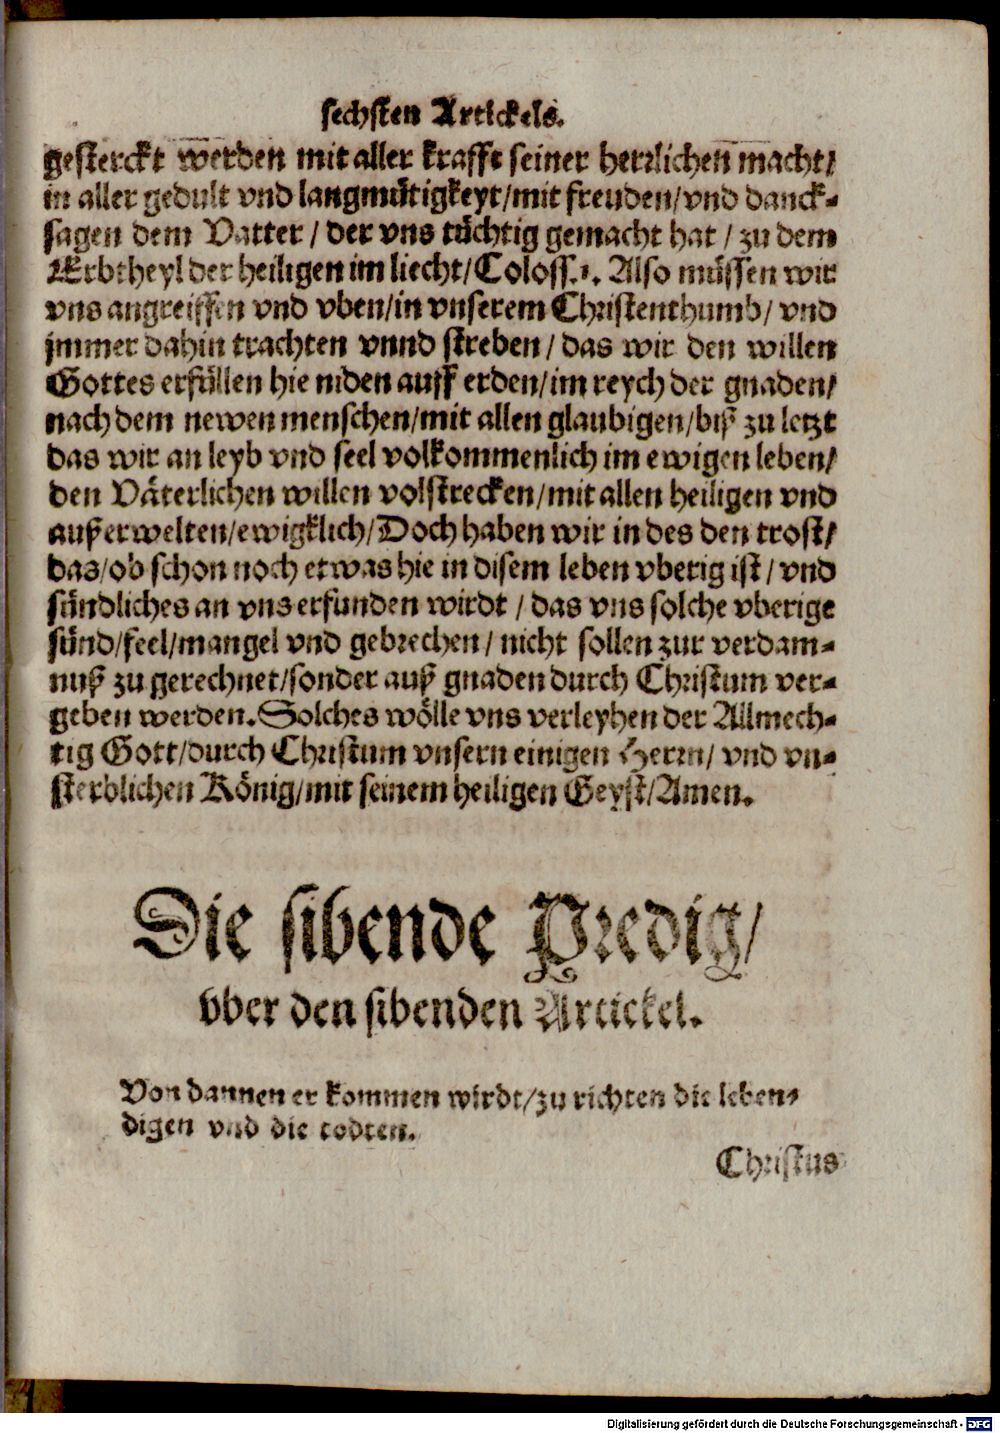 sechsten Artickels.
gesterckt werden mit aller krafft seiner herrlichen macht/
in aller gedult vnd langmütigkeyt/mit freuden/vnd danck-
sagen dem Vatter / der vns tüchtig gemacht hat / zu dem
Erbtheyl der heiligen im liecht/Coloss.1. Also müssen wir
vns angreiffen vnd vben/in vnserem Christenthumb/ vnd
jmmer dahin trachten vnnd streben / das wir den willen
Gottes erfüllen hie niden auff erden/im reych der gnaden/
nach dem newen menschen/mit allen glaubigen/biß zu letzt
das wir an leyb vnd seel volkommenlich im ewigen leben/
den Väterlichen willen volstrecken/mit allen heiligen vnd
außerwelten/ewigklich/Doch haben wir in des den trost/
das/ob schon noch etwas hie in disem leben vberig ist / vnd
sündliches an vns erfunden wirdt / das vns solche vberige
sünd/feel/mangel vnd gebrechen / nicht sollen zur verdam-
nuß zu gerechnet/sonder auß gnaden durch Christum ver-
geben werden.Solches wölle vns verleyhen der Allmech-
tig Gott/durch Christum vnsern einigen Herrn/ vnd vn-
sterblichen König/mit seinem heiligen Geyst/Amen.
Die sibende Predig/
vber den sibenden Artickel.
Von dannen er kommen wirdt/zu richten die leben-
digen vnd die todten.
Christus
Digitalisierung gefördert durch die Deutsche Forschungsgemeinschaft - DFG